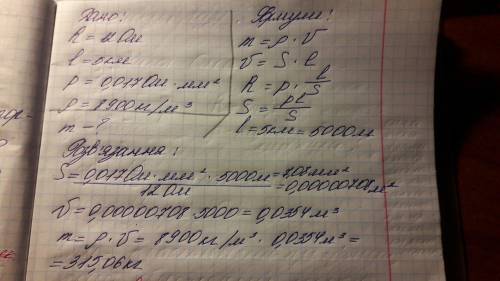 Дано:
R = 12 Ом
l = 5 км
ρ = 0,017 Ом · мм²
ρ = 8900 кг/м³
m - ?
Формули:
m = ρ · V
V = S · l
R = ρ · l/S
S = ρl/S
l = 5км = 5000м
Розв'язання:
S = 0,017 Ом · мм² · 5000м / 12 Ом = 7,08 мм² = 0,00000708 м²
V = 0,00000708 · 5000 = 0,0354 м³
m = ρ · V = 8900 кг/м³ · 0,0354 м³ =
= 315,06 кг